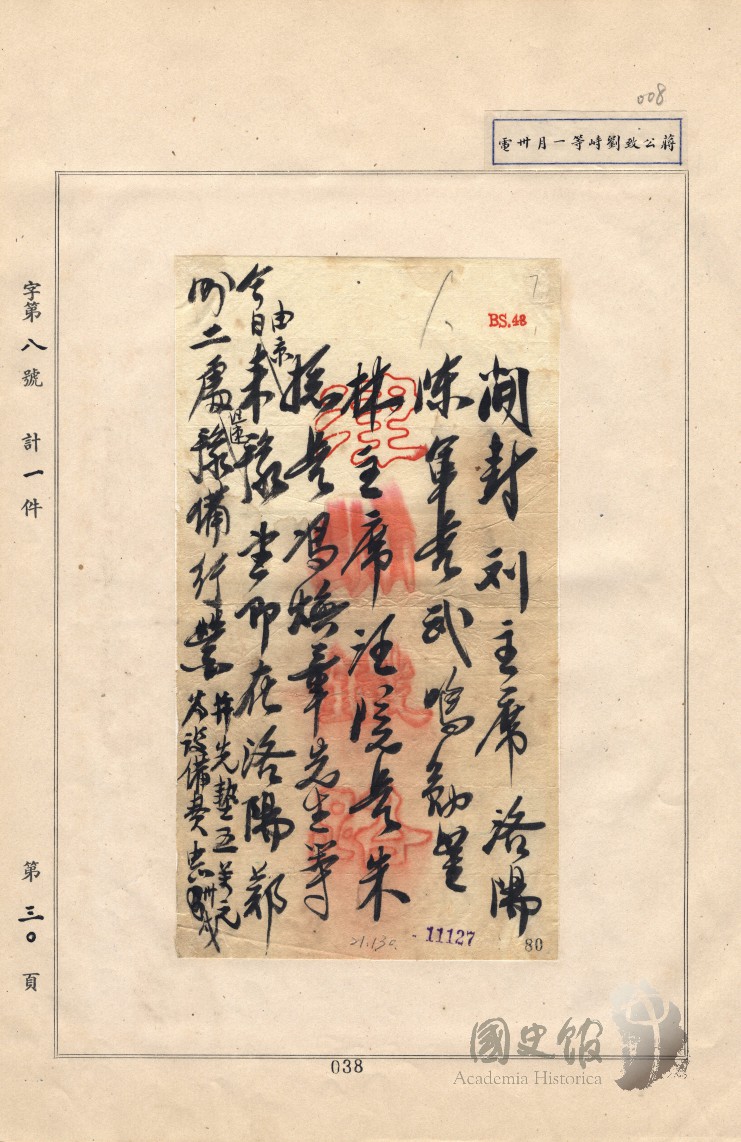 008
蔣公致劉峙等一月卅電
BS.48
開封刘主席洛陽
陳軍長武鳴勛鑒
林主席汪院長朱
總長馮煥章先生等
今日由京來豫望即在洛陽鄭
州二處迅速豫備行營
并先墊五萬元
為設備費
21.1.30.
11127
80
字第八號 計一件 第三〇頁
038
國史館
Academia Historica